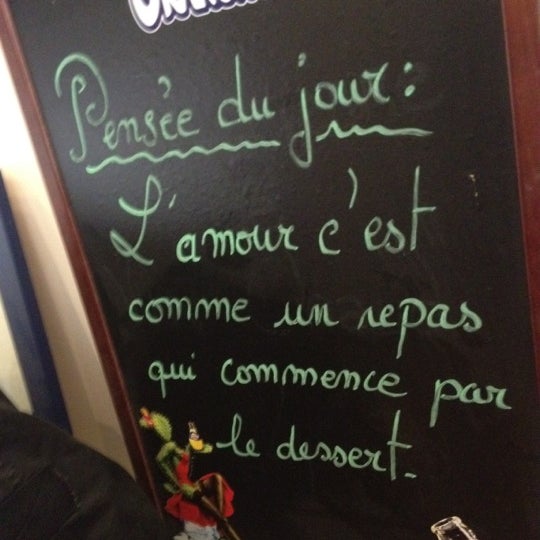 Pensée du jour:
L'amour c'est
comme un repas
qui commence par
le dessert.